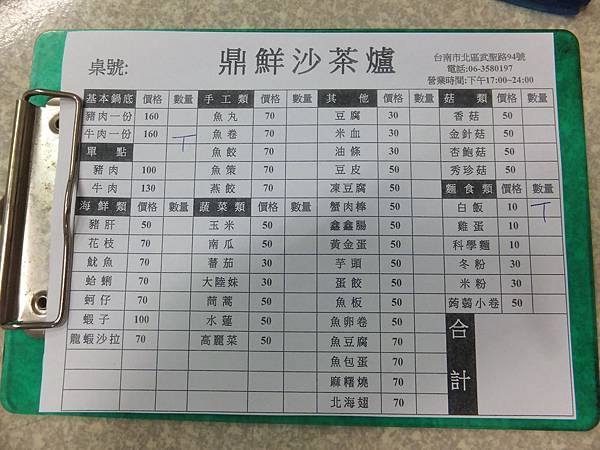 桌號:
鼎鮮沙茶爐
台南市北區武聖路94號
電話:06-3580197
營業時間:下午17:00~24:00
基本鍋底 價格 數量 手工類 價格 數量 其他 價格 數量 菇類 價格 數量
豬肉一份 160 魚丸 70 豆腐 30 香菇 50
牛肉一份 160 T 魚卷 70 米血 30 金針菇 50
單點 魚餃 70 油條 30 杏鮑菇 50
豬肉 100 魚策 70 豆皮 50 秀珍菇 50
牛肉 130 燕餃 70 凍豆腐 50 麵食類 價格 數量
海鮮類 價格 數量 蔬菜類 價格 數量 蟹肉棒 50 白飯 10 T
豬肝 50 玉米 50 鑫鑫腸 50 雞蛋 10
花枝 70 南瓜 50 黃金蛋 50 科學麵 10
魷魚 70 蕃茄 30 芋頭 50 冬粉 30
蛤蜊 70 大陸妹 30 蛋餃 50 米粉 30
蚵仔 70 茼蒿 50 魚板 50 蒟蒻小卷 50
蝦子 100 水蓮 50 魚卵卷 50 合計
龍蝦沙拉 70 高麗菜 50 魚豆腐 70
魚包蛋 70
麻糬燒 70
北海翅 70